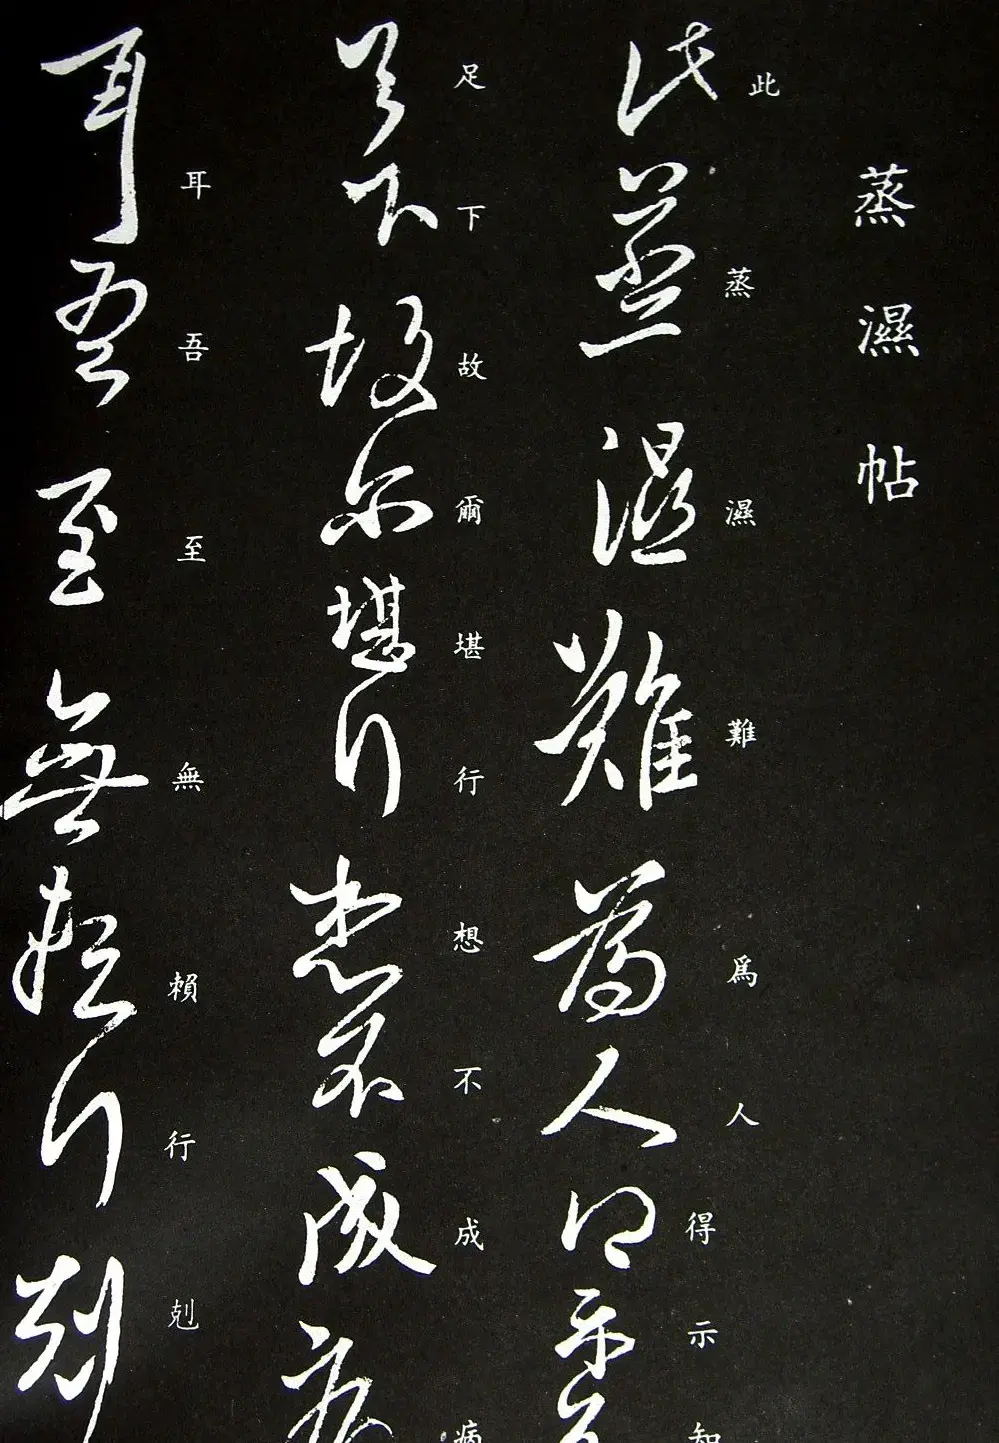 蒸濕帖
此蒸濕難爲人得示知
足下故爾堪行想不成病
耳吾至無賴行剋